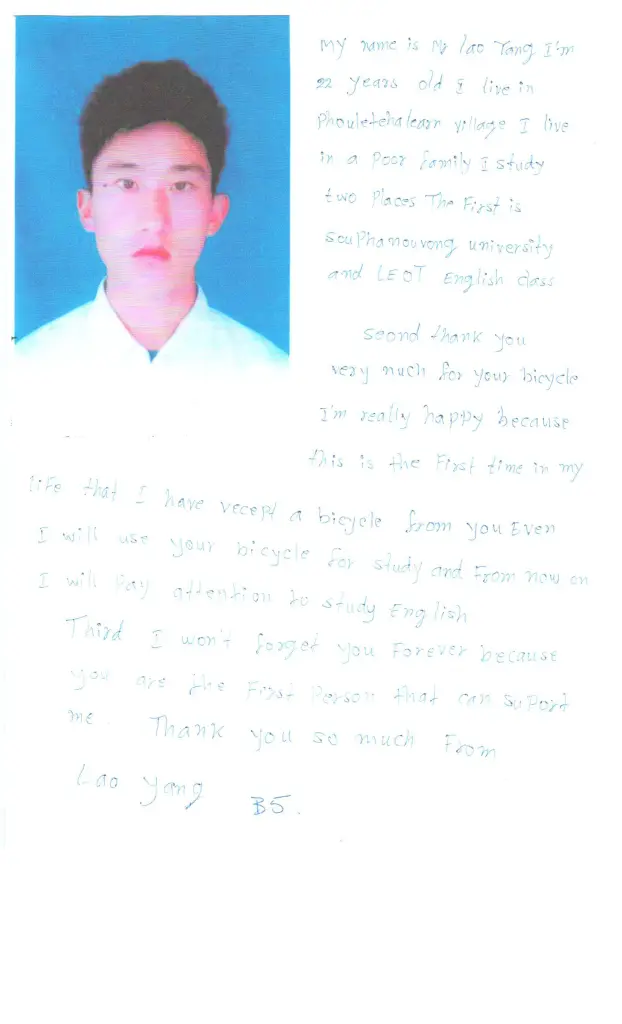 My name is Mr Lao Yang I'm
22 years old I live in
Phoulefehalearn village I live
in a poor family I study
two Places The First is
SouPhanouvong university
and LEOT English class
seond thank you
very much for your bicycle
I'm really happy because
this is the First time in my
life that I have vecept a bicycle from you Even
I will use your bicycle for study and From now on
I will Pay attention to study English
Third I won't forget you Forever because
you are the First Person that can suPort
me. Thank you so much From
Lao Yang B5.